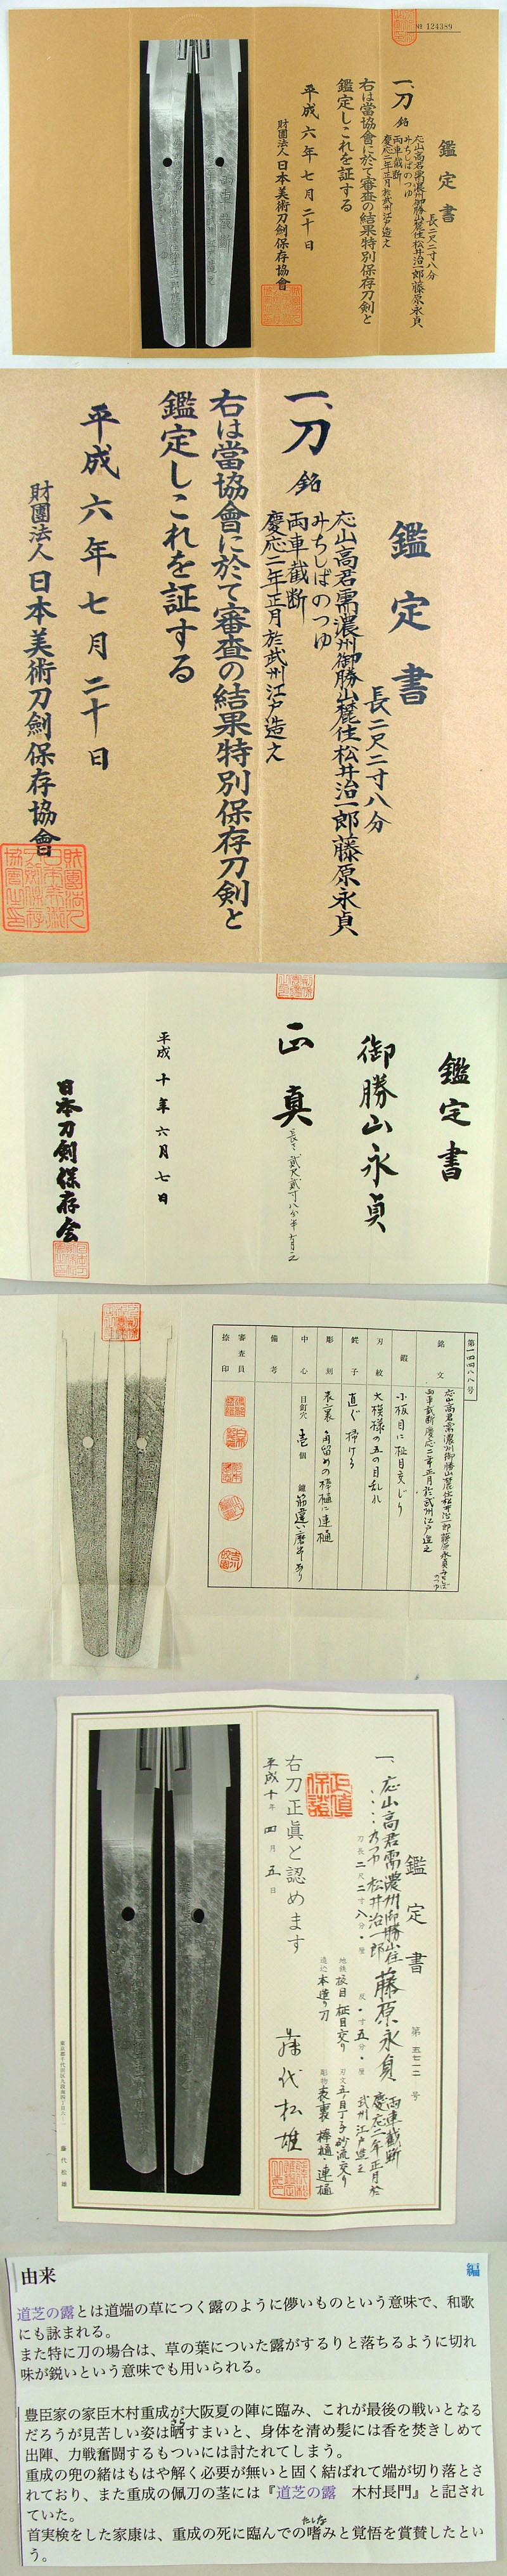 № 124389
鑑定書
長二尺二寸八分
一、刀 銘
応山高君需濃州御勝山麓住松井治一郎藤原永貞
みちしばのつゆ
両車截断
慶応二年正月於武州江戸造之
右は當協會に於て審査の結果特別保存刀剣と
鑑定しこれを証する
平成六年七月二十日
財團法人日本美術刀劍保存協會
鑑定書
長二尺二寸八分
一、刀 銘
応山高君需濃州御勝山麓住松井治一郎藤原永貞
みちしばのつゆ
両車截断
慶応二年正月於武州江戸造之
右は當協會に於て審査の結果特別保存刀剣と
鑑定しこれを証する
平成六年七月二十日
財團法人日本美術刀劍保存協會
鑑定書
御勝山永貞
正真
平成十年六月七日
日本刀剣保存会
第一四四八八号
銘文
応山高君需濃州御勝山麓住松井治一郎藤原永貞みちしばのつゆ
両車截断慶応二年正月於武州江戸造之
鍛 小板目に柾目交じり
刃紋 大模様の五の目乱れ
鋩子 直ぐ掃ける
彫刻 表裏角留めの棒樋に連樋
中心 目釘穴 壱個 鑢 筋違い磨年あり
備考
審査員
捺印
鑑定書
第五七二一号
一、応山高君需濃州御勝山住
松井治一郎
藤原永貞
両車截断
慶応二年正月於
武州江戸造之
刀長二尺二寸八分・厘 反・寸五分・厘
地鉄板目 柾目交り 刃文五ノ目丁子砂流交り
造込本造り刀 彫物表裏棒樋・連樋
正真保證
右刀正眞と認めます
平成十年四月五日
藤代松雄
由来
編
道芝の露とは道端の草につく露のように儚いものという意味で、和歌
にも詠まれる。
また特に刀の場合は、草の葉についた露がするりと落ちるように切れ
味が鋭いという意味でも用いられる。
豊臣家の家臣木村重成が大阪夏の陣に臨み、これが最後の戦いとなる
だろうが見苦しい姿は晒すまいと、身体を清め髪には香を焚きしめて
出陣、力戦奮闘するもついには討たれてしまう。
重成の兜の緒はもはや解く必要が無いと固く結ばれて端が切り落とさ
れており、また重成の佩刀の茎には『道芝の露　木村長門』と記され
ていた。
首実検をした家康は、重成の死に臨んでの嗜みと覚悟を賞賛したとい
う。